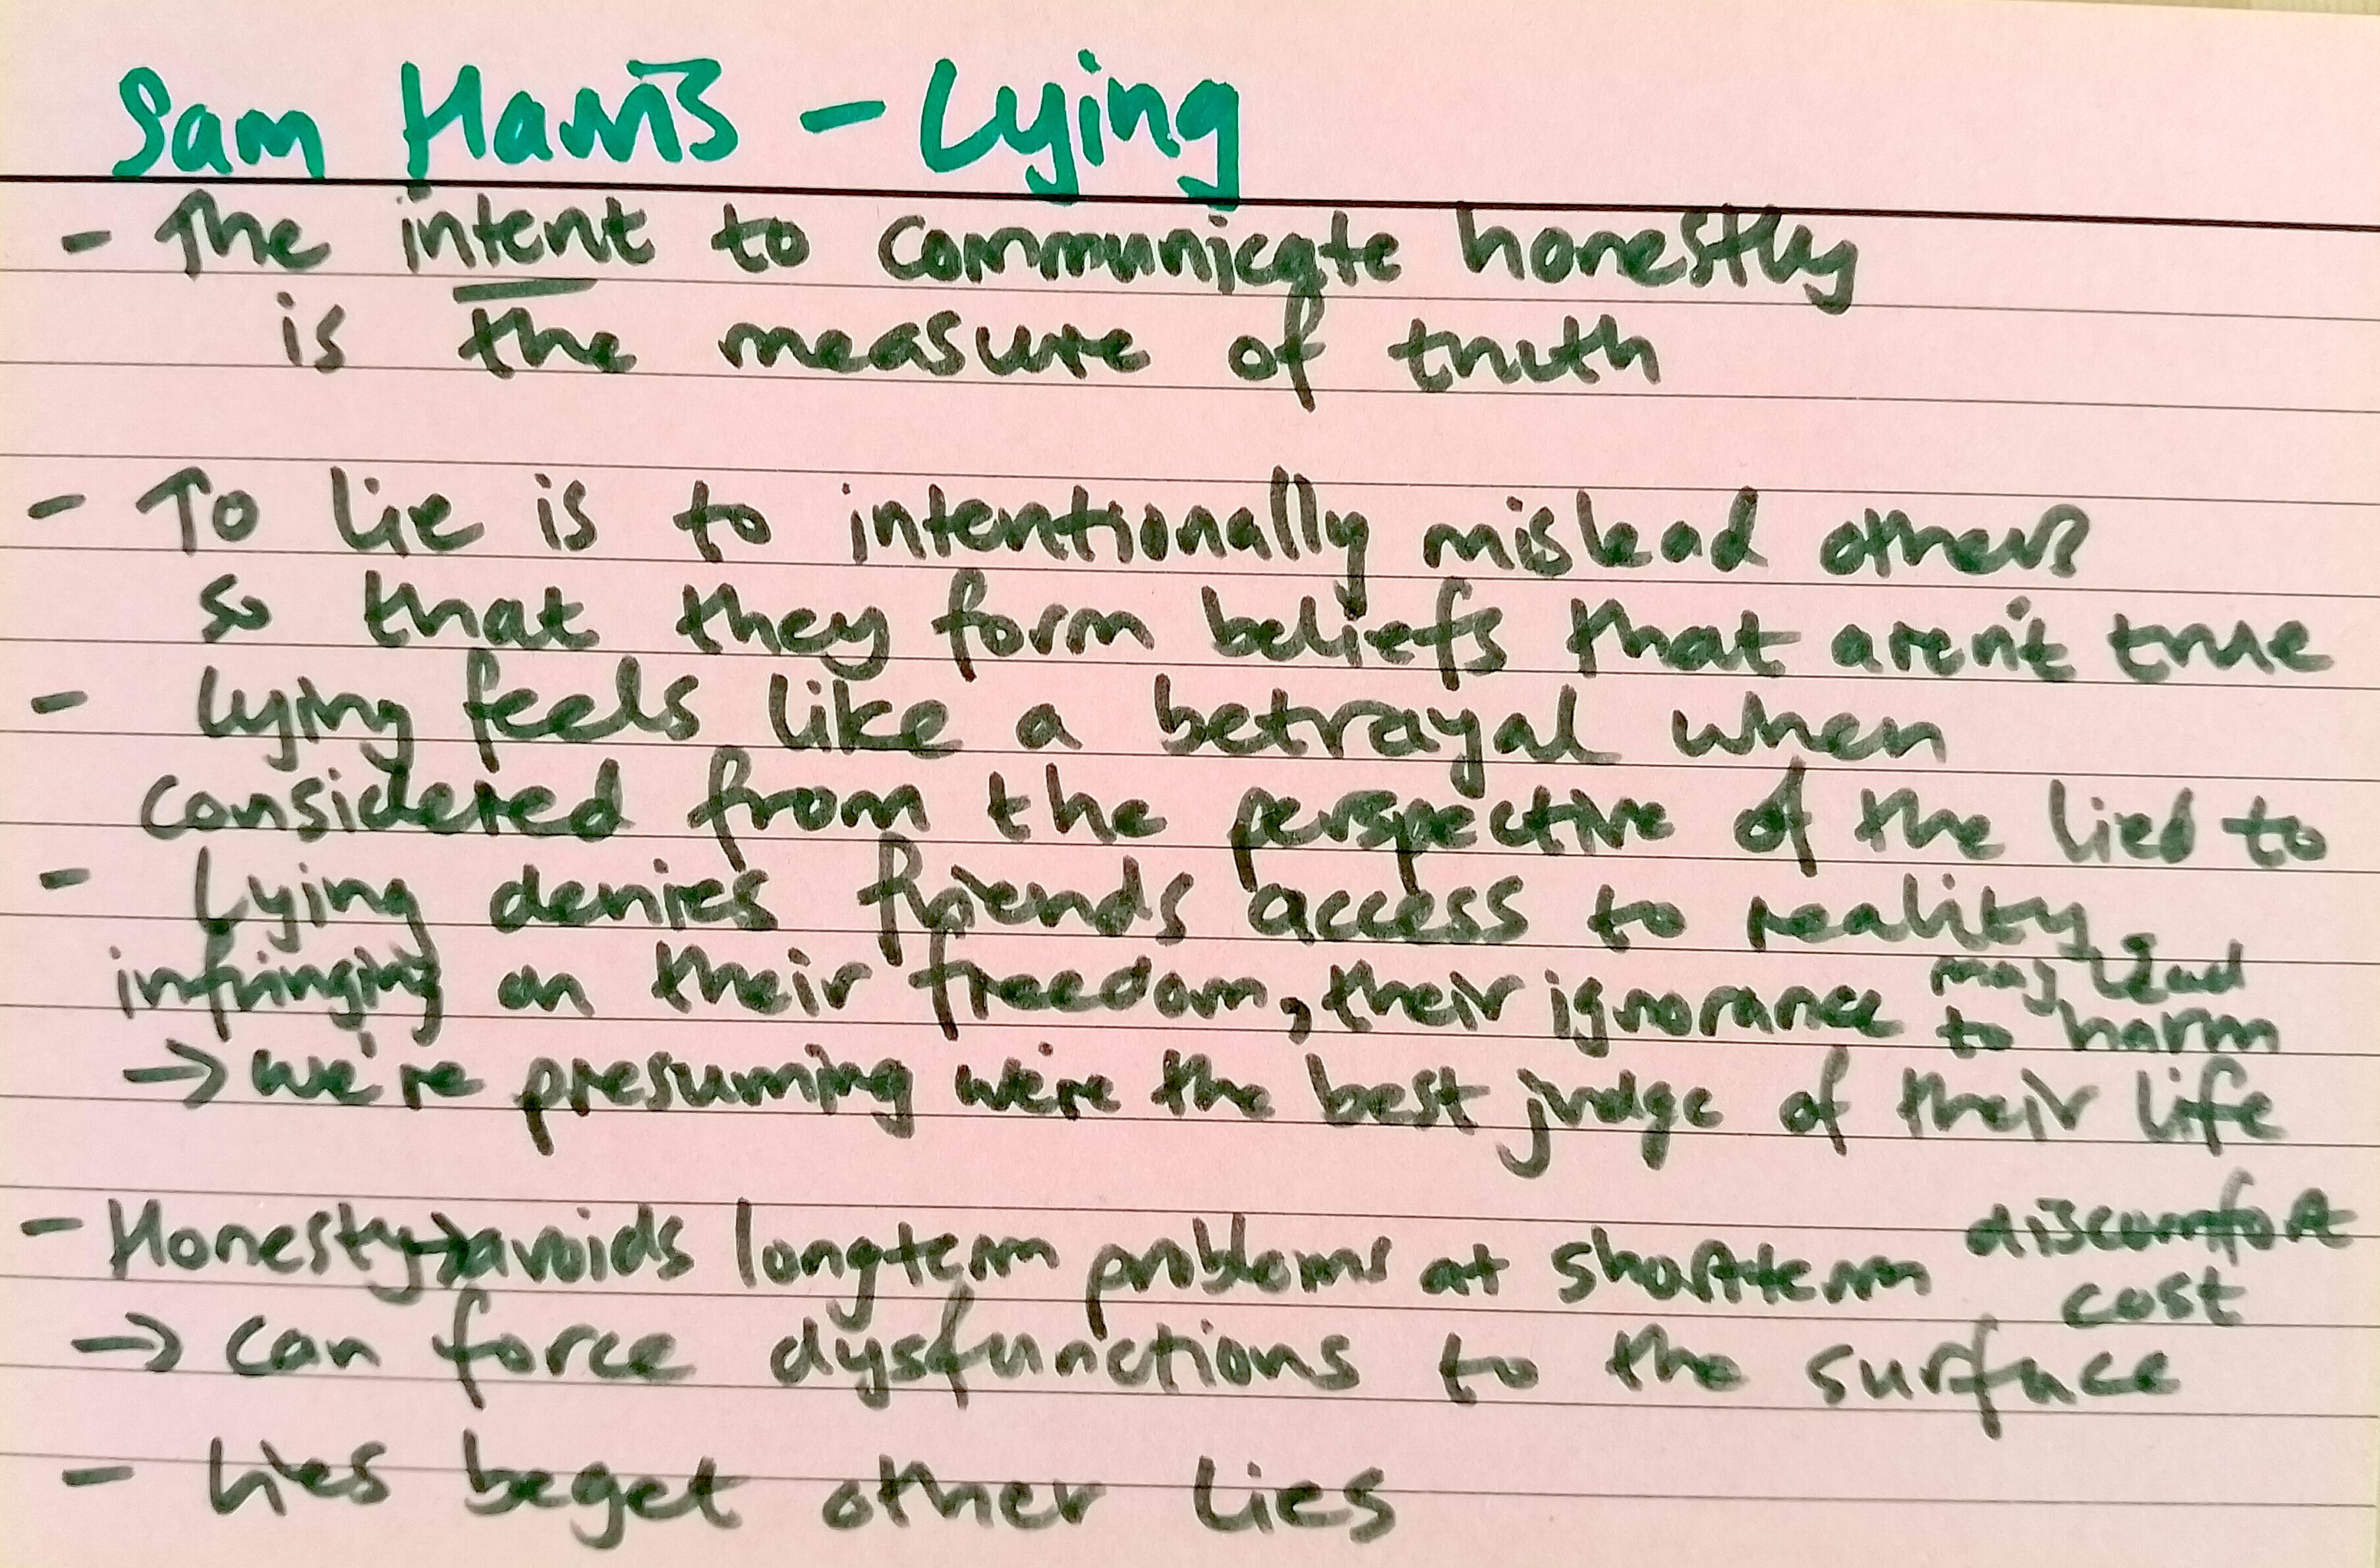 Sam Harris - Lying
- The intent to communicate honestly
is the measure of truth
- To lie is to intentionally mislead others
so that they form beliefs that aren't true
- Lying feels like a betrayal when
considered from the perspective of the lied to
- Lying denies friends access to reality,
infringing on their freedom, their ignorance may lead to harm
→ we're presuming we're the best judge of their life
- Honesty→avoids longterm problems at shortterm discomfort cost
→ can force dysfunctions to the surface
- Lies beget other lies